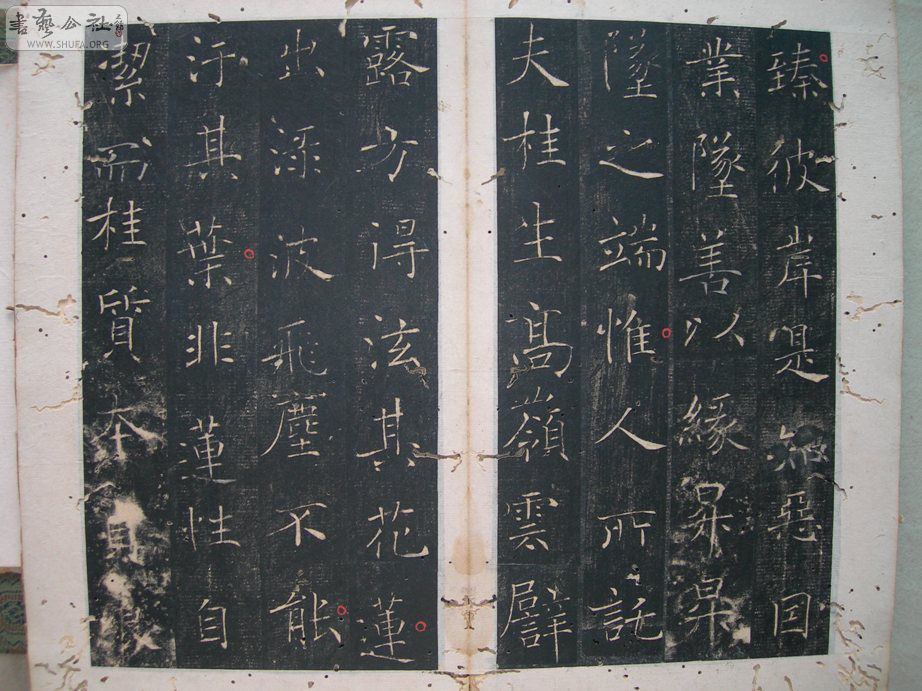 書藝公社
WWW.SHUFA.ORG
臻彼岸是知惡因
業墜善以緣昇昇
墜之端惟人所託
夫桂生高嶺雲譬
露方得泫其花蓮
出淥波飛塵不能
汙其葉非蓮性自
潔而桂質本貞良